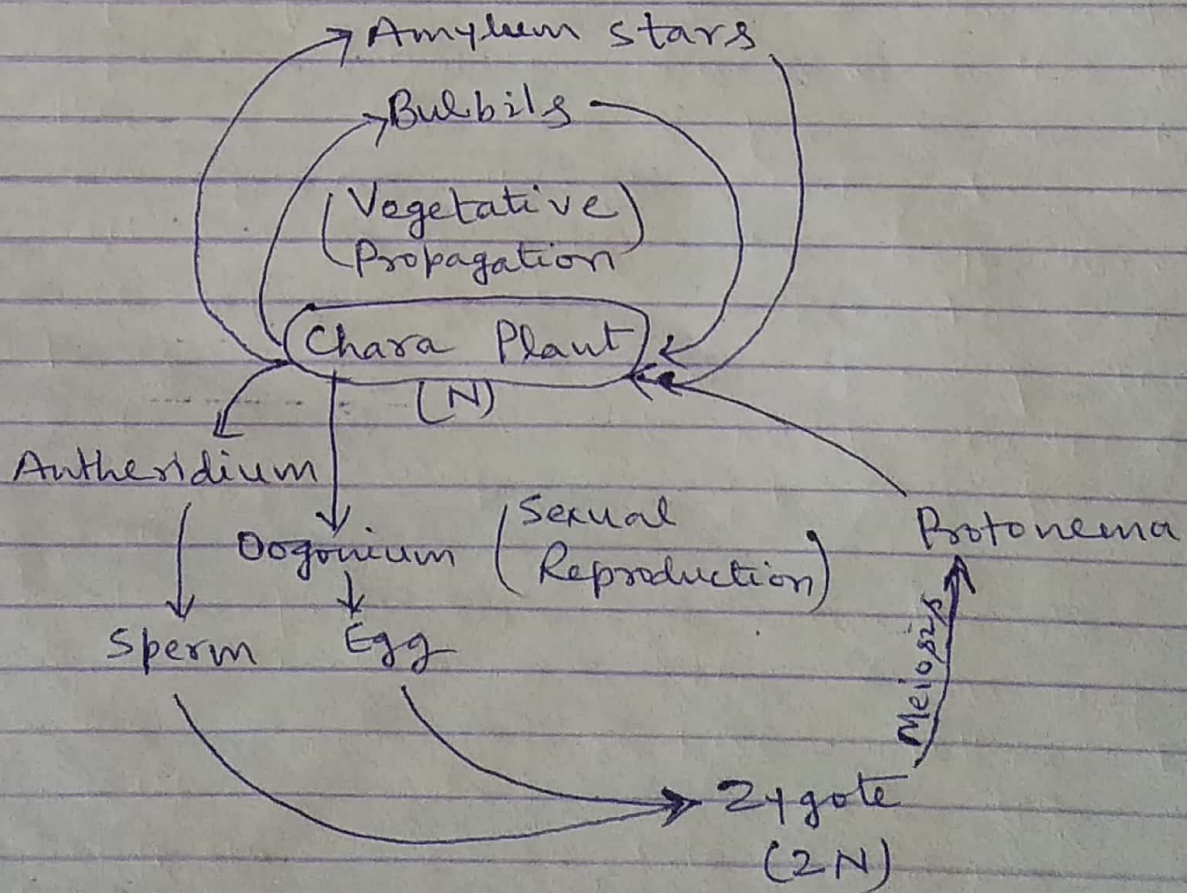 Amylum stars
Bulbils
(Vegetative
Propagation)
Chara Plant
(N)
Antheridium
Oogonium
(Sexual
Reproduction)
Protonema
Sperm
Egg
Meiosis
Zygote
(2N)